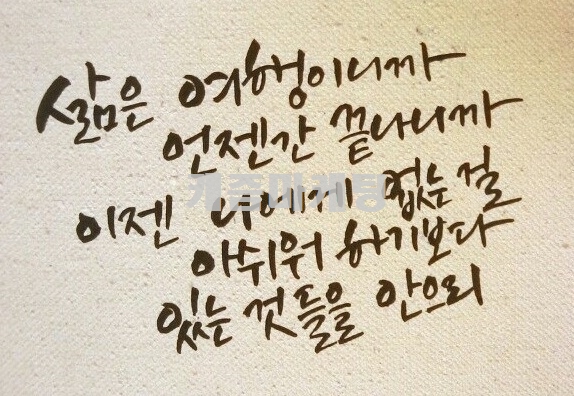 삶은 여행이니까
언젠간 끝나니까
이젠 나에게 없는 걸
아쉬워 하기보다
있는 것들을 안으리